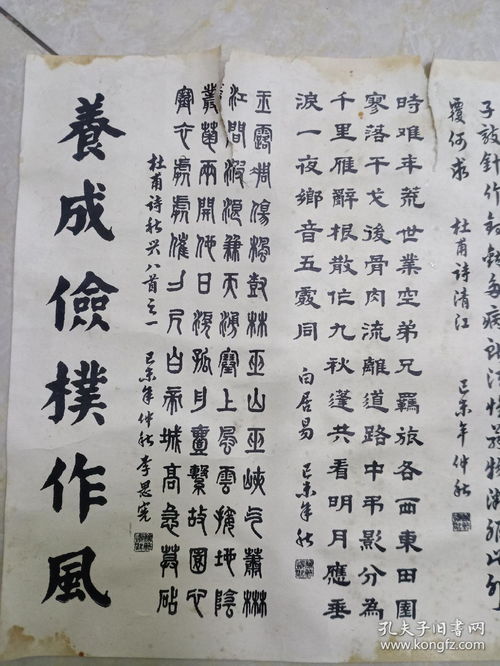 子敲針作
覆何求 杜甫詩清江 己未年仲秋
時难年荒世業空弟兄羈旅各西東田園
寥落干戈後骨肉流離道路中弔影分為
千里雁辭根散作九秋蓬共看明月應垂
淚一夜鄉音五處同 白居易 己未年秋
玉露凋傷楓樹林巫山巫峽气蕭森
江間波浪兼天湧塞上風雲接地陰
叢菊兩開他日淚孤舟壹繫故園心
寒衣處處催刀尺白帝城高急暮砧
杜甫詩秋兴八首之一 己未年仲秋李思宪
養成儉樸作風
孔夫子旧书网
kongfz.com